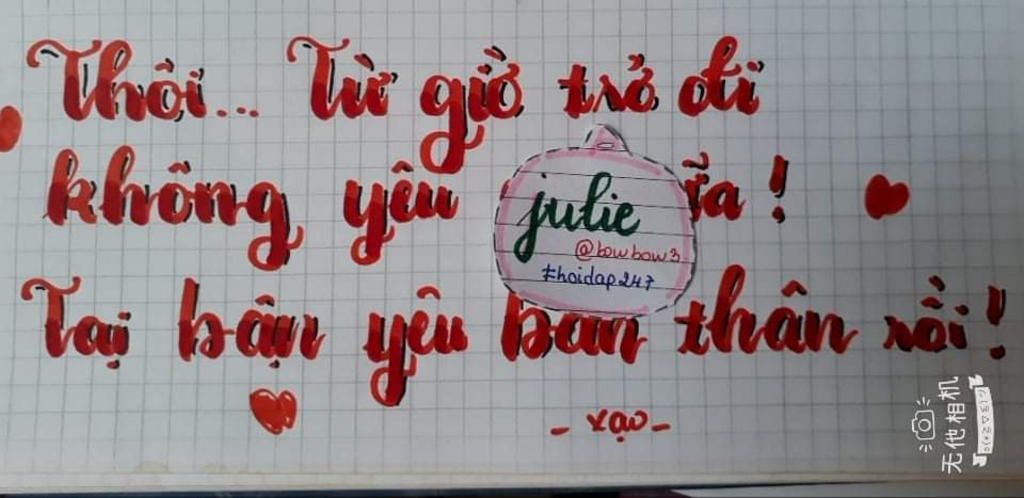 Thôi... Từ giờ trở đi
không yêu
julie
@bowbow3
#hoidap247
Tại bận yêu bản thân rồi!
- xạo -
无他相机